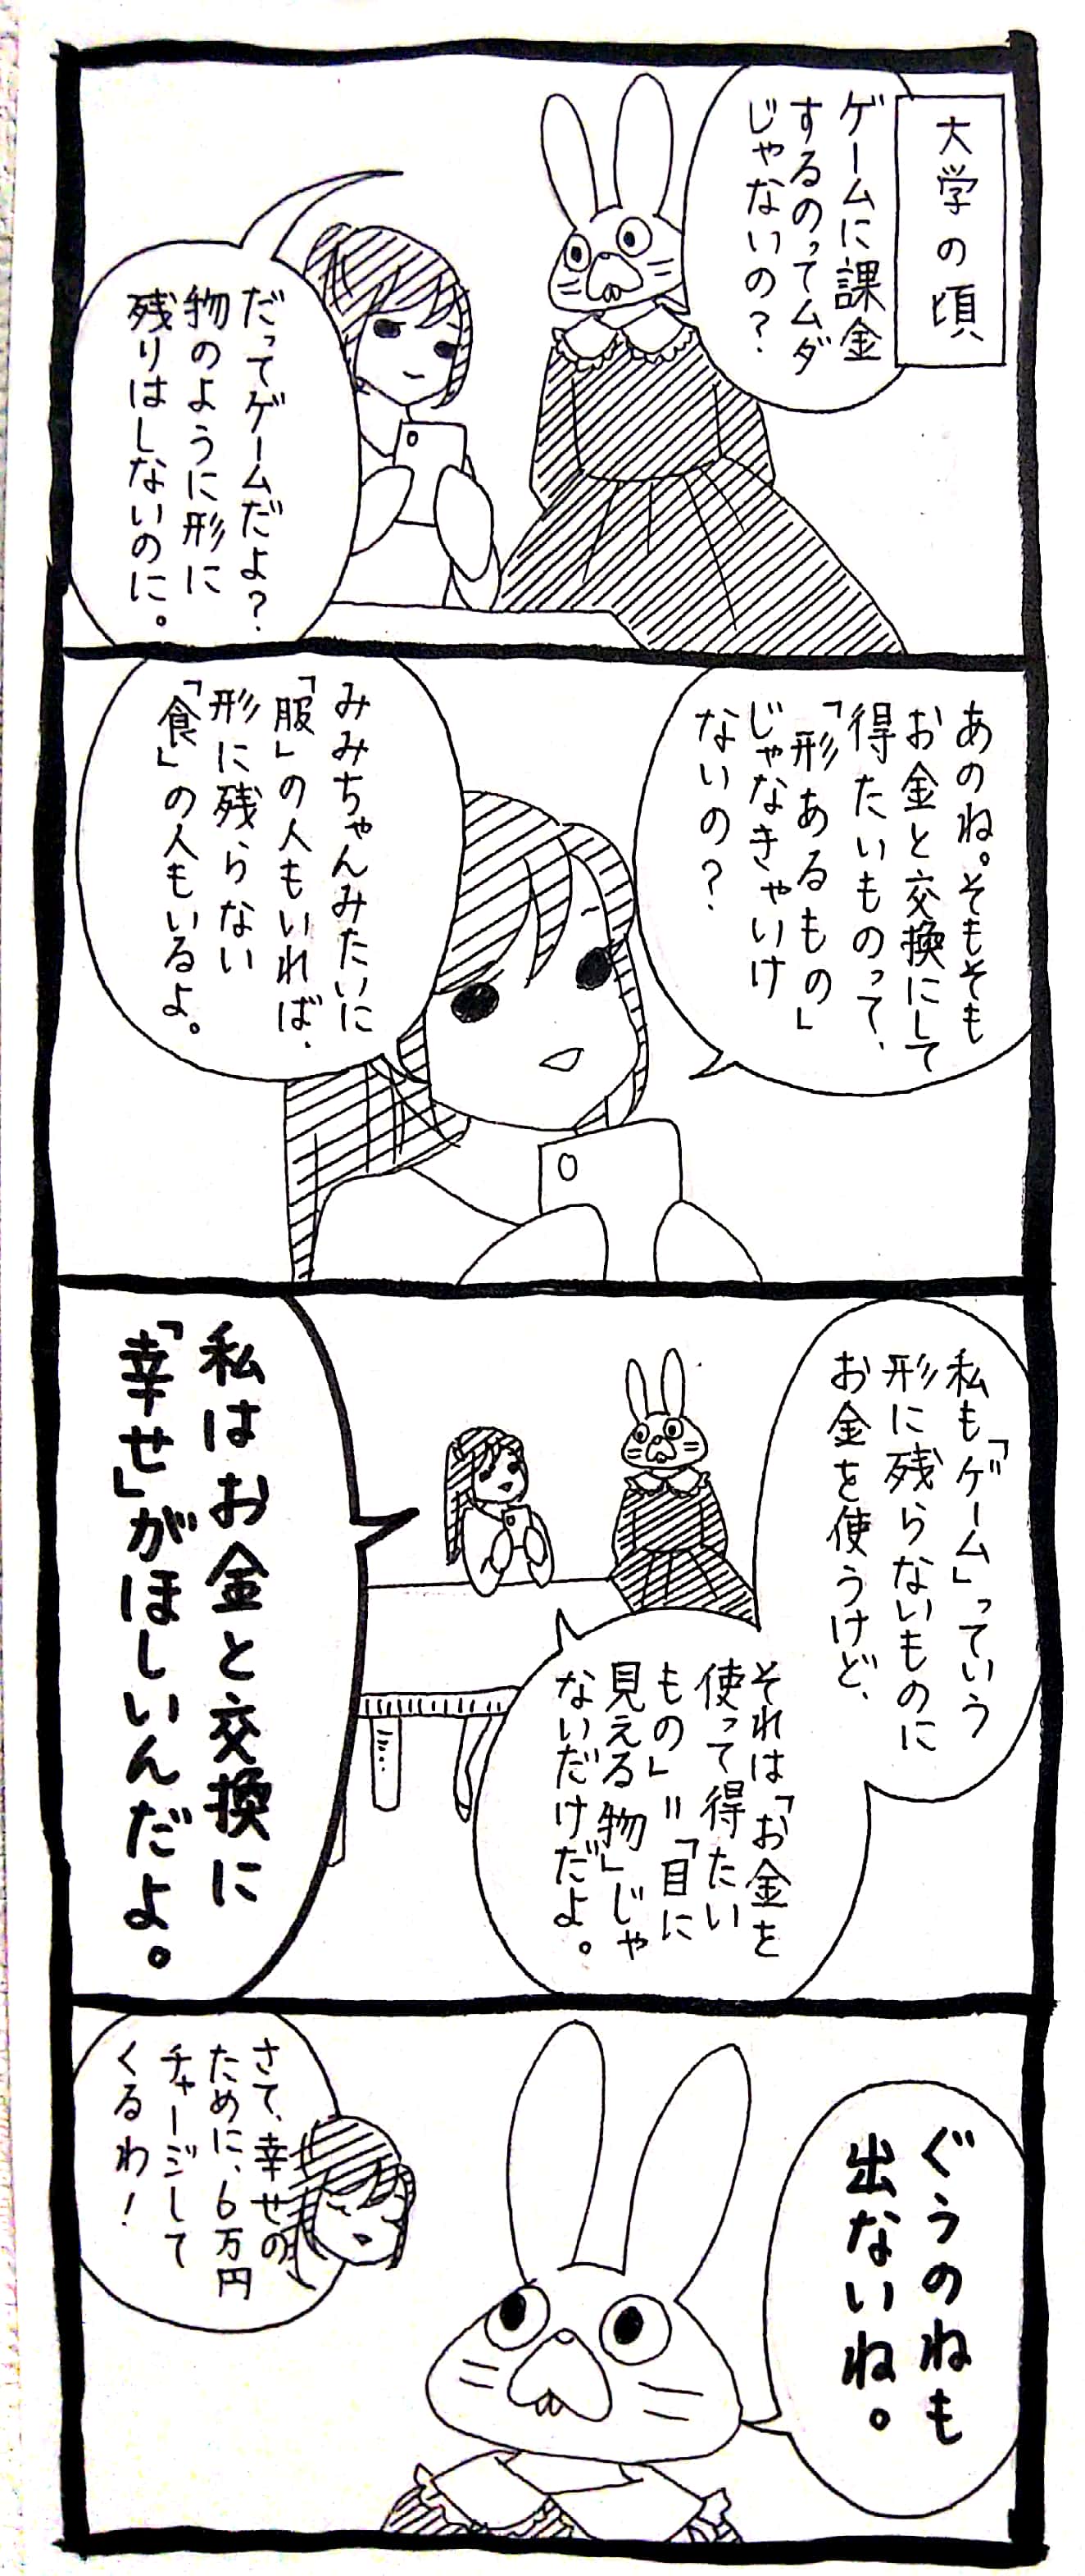 大学の頃
ゲームに課金
するのってムダ
じゃないの？
だってゲームだよ？
物のように形に
残りはしないのに。
あのね。そもそも
お金と交換にして
得たいものって、
「形あるもの」
じゃなきゃいけ
ないの？
みみちゃんみたいに
「服」の人もいれば、
形に残らない
「食」の人もいるよ。
私も「ゲーム」っていう
形に残らないものに
お金を使うけど、
それは「お金を
使って得たい
もの」＝「目に
見える物」じゃ
ないだけだよ。
私はお金と交換に
「幸せ」がほしいんだよ。
ぐうのねも
出ないね。
さて、幸せの
ために、6万円
チャージして
くるわ！